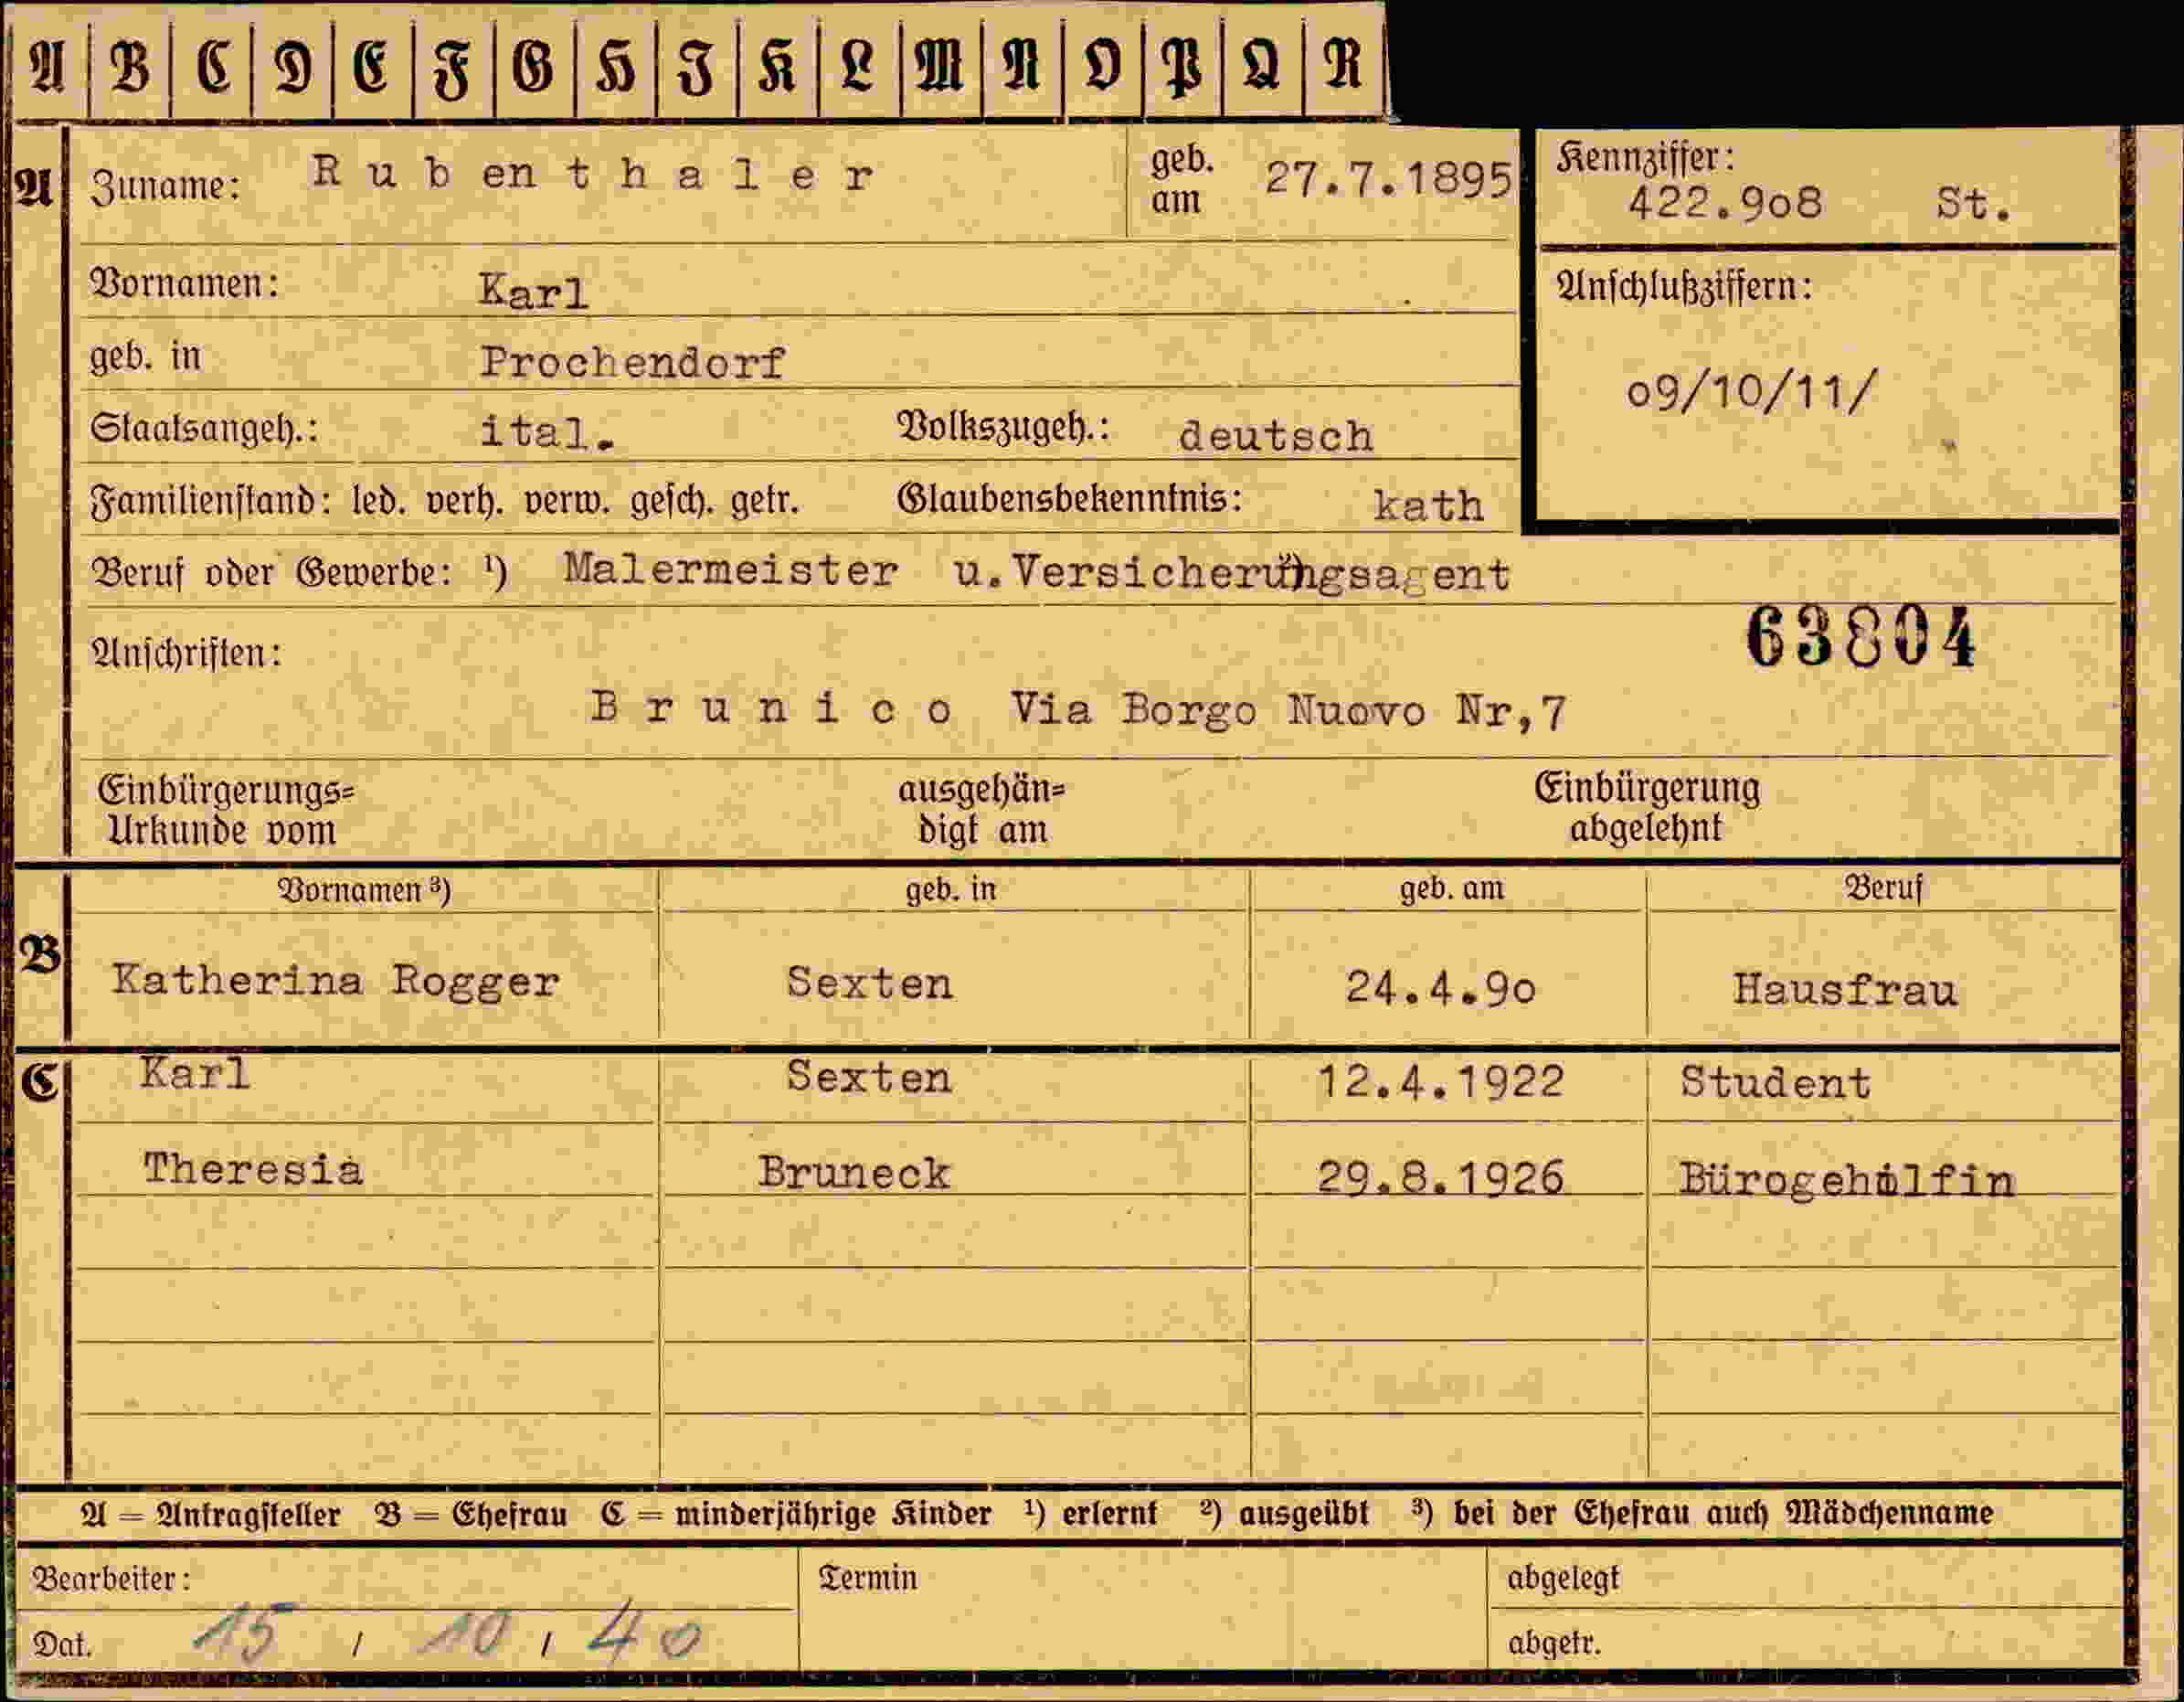 A B C D E F G H J K L M N O P Q R
A Zuname: Rubenthaler geb. am 27.7.1895
Kennziffer: 422.9o8 St.
Vornamen: Karl
Anschlußziffern:
geb. in Prochendorf
o9/10/11/
Staatsangeh.: ital. Volkszugeh.: deutsch
Familienstand: led. verh. verw. gesch. getr. Glaubensbekenntnis: kath
Beruf oder Gewerbe: ¹) Malermeister u.Versicherungsagent
63804
Anschriften:
Brunico Via Borgo Nuovo Nr,7
Einbürgerungs= ausgehän= Einbürgerung
Urkunde vom digt am abgelehnt
Vornamen ³) geb. in geb. am Beruf
B Katherina Rogger Sexten 24.4.9o Hausfrau
C Karl Sexten 12.4.1922 Student
Theresia Bruneck 29.8.1926 Bürogehilfin
A = Antragsteller B = Ehefrau C = minderjährige Kinder ¹) erlernt ²) ausgeübt ³) bei der Ehefrau auch Mädchenname
Bearbeiter: Termin abgelegt
Dat. 15 / 10 / 40 abgetr.